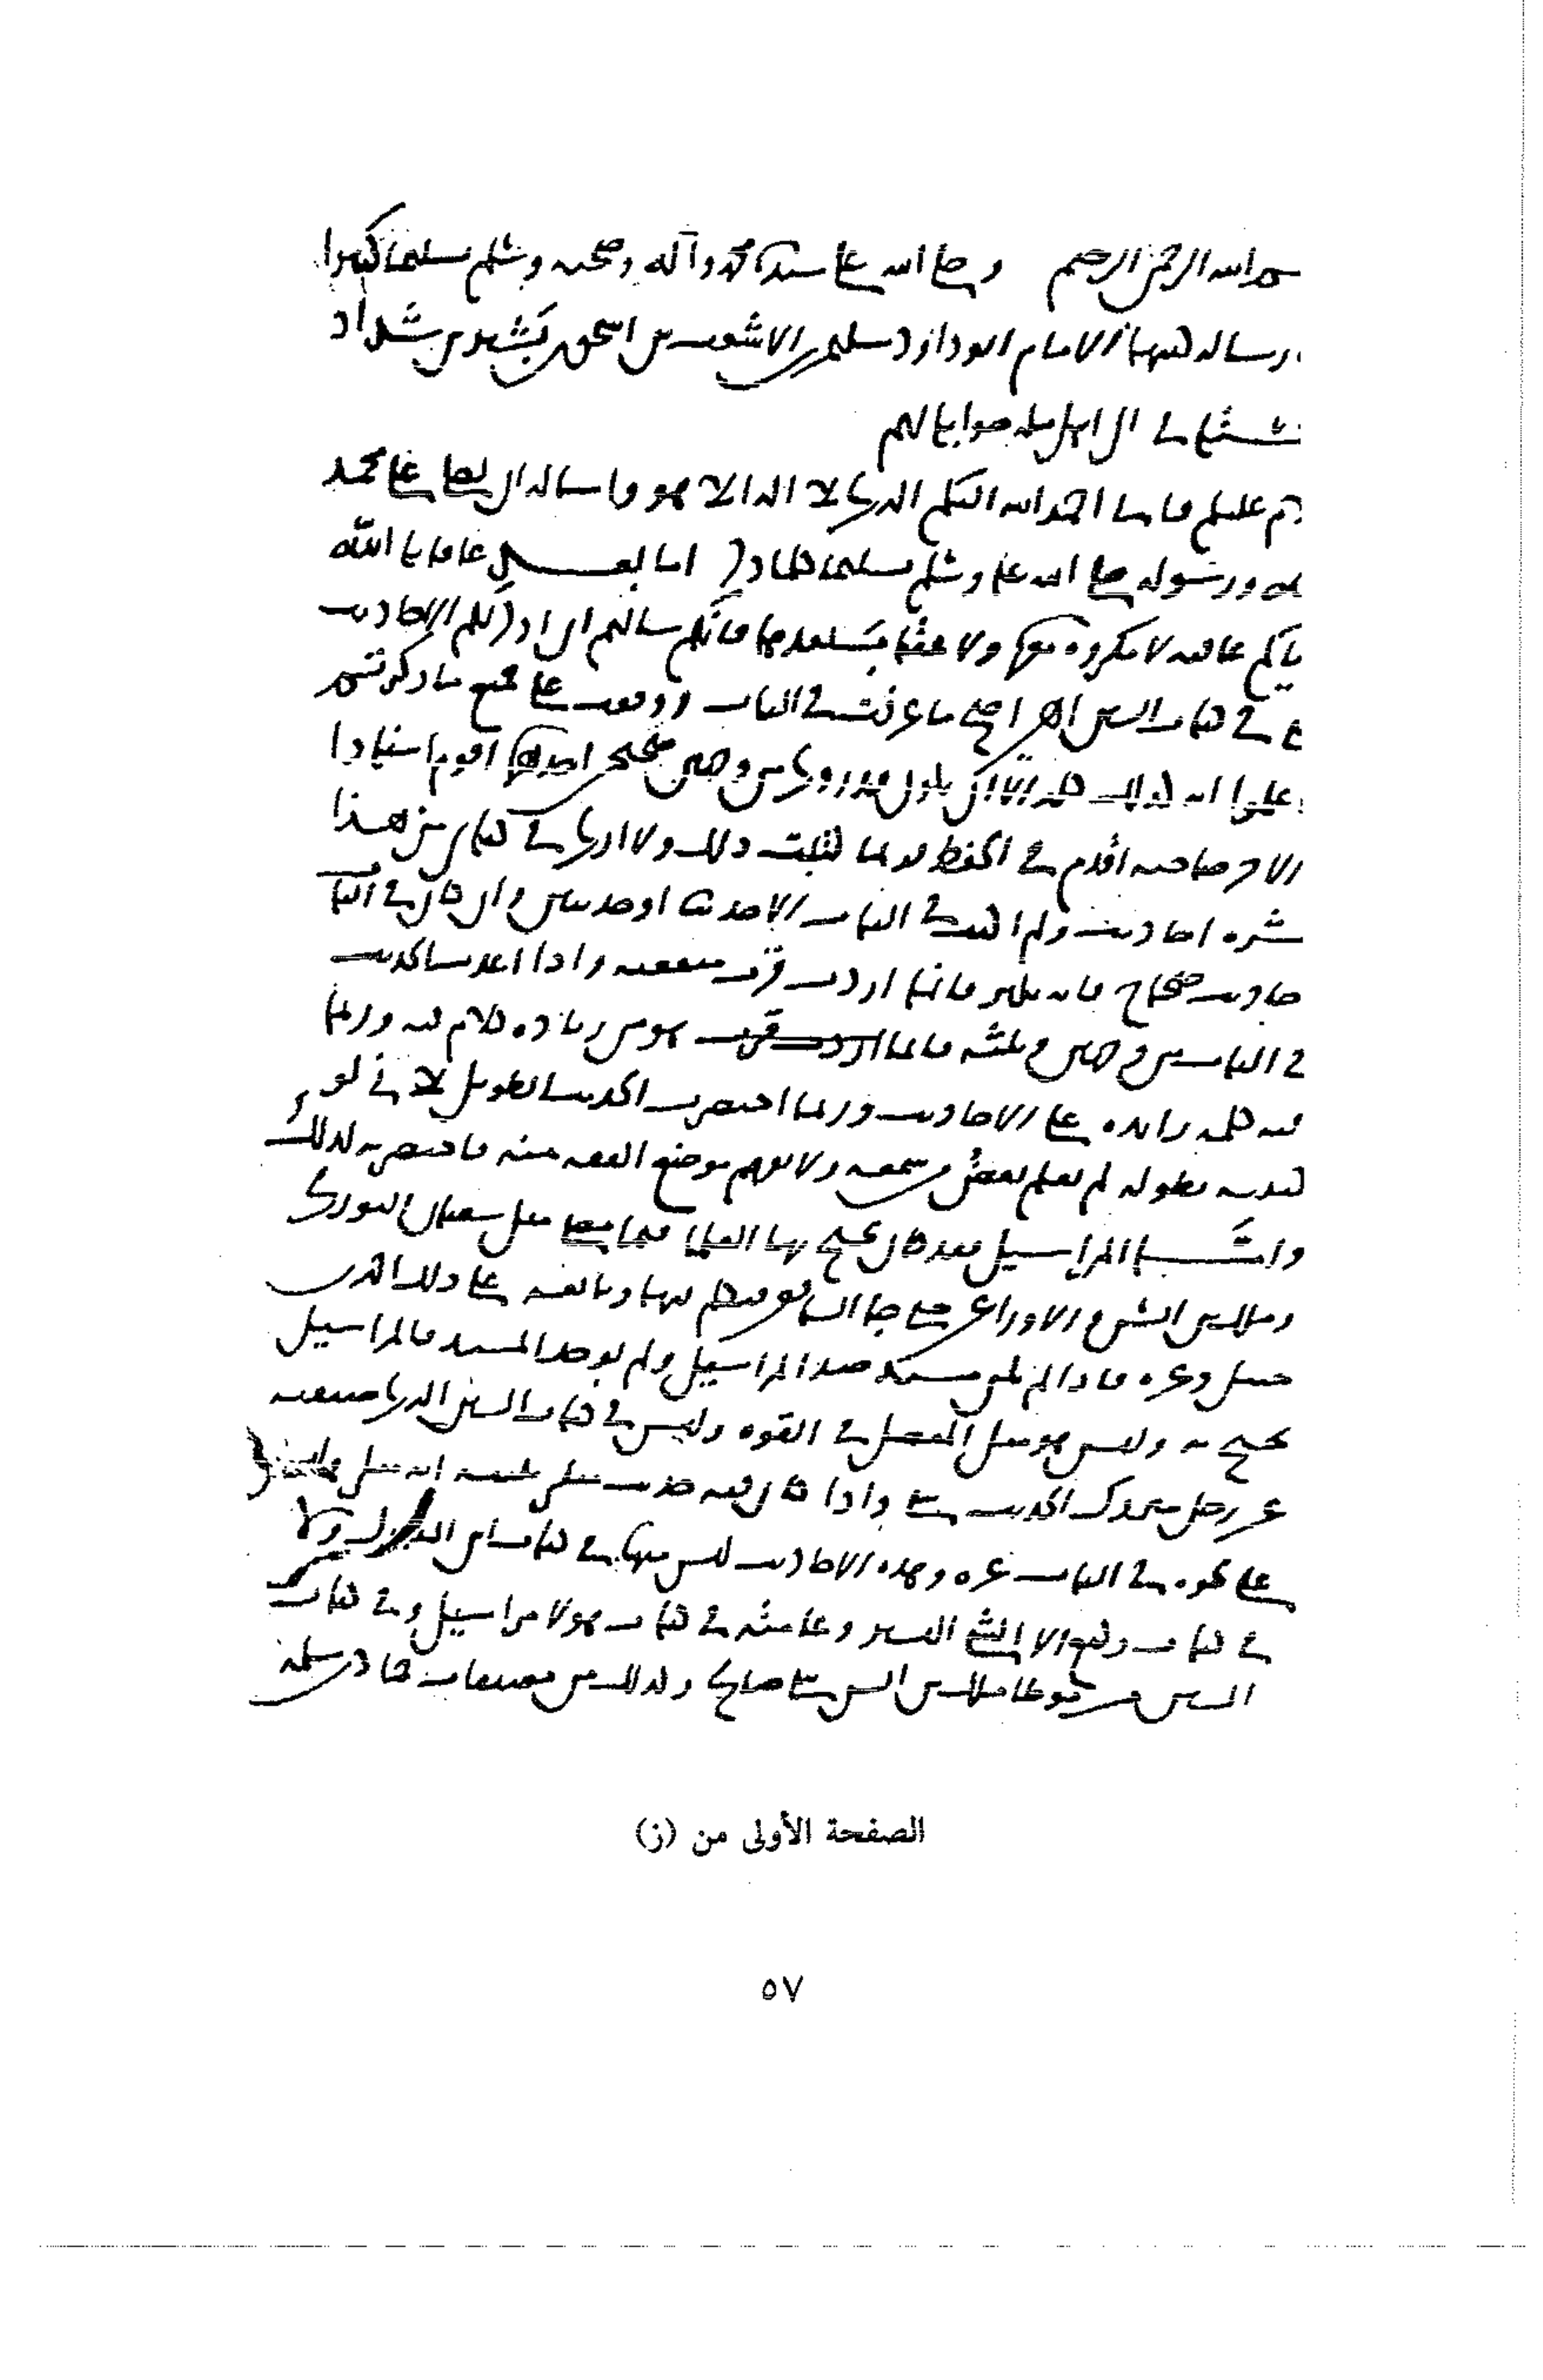 بسم الله الرحمن الرحيم وصلى الله على سيدنا محمد وآله وصحبه وسلم تسليما كثيرا
رسالة كتبها الامام ابو داود سليمن بن الاشعث بن اسحق بن بشير بن شداد
السجستاني الى اهل مكة جوابا لهم
سلام عليكم فاني احمد الله اليكم الذي لا اله الا هو واساله ان يصلي على محمد
عبده ورسوله صلى الله عليه وسلم تسليما اما بعد عافانا الله
واياكم عافية لا مكروه معها ولا عقاب بعدها فانكم سالتم ان اذكر لكم الاحاديث
التي في كتاب السنن اهي اصح ما عرفت في الباب ووقفت على جميع ما ذكرتم
فاعلموا انه كذلك كله الا ان يكون قد روي من وجهين صحيحين احدهما اقوم اسنادا
والاخر صاحبه اقدم في الحفظ فربما كتبت ذلك ولا ارى في كتابي من هذا
عشرة احاديث ولم اكتب في الباب الا حديثا او حديثين وان كان في الباب
احاديث صحاح فانه يكثر وانما اردت قرب منفعته واذا اعدت الحديث
في الباب من وجهين وثلثة فانما هو من زيادة كلام فيه وربما
فيه كلمة زايدة على الاحاديث وربما اختصرت الحديث الطويل لاني لو
كتبته بطوله لم يعلم بعض من سمعه ولا يفهم موضع الفقه منه فاختصرته لذلك
واما المراسيل فقد كان يحتج بها العلماء فيما مضى مثل سفيان الثوري
ومالك بن انس والاوزاعي حتى جا الشافعي فتكلم فيها وتابعه على ذلك احمد بن
حنبل وغيره فاذا لم يكن مسند ضد المراسيل ولم يوجد المسند فالمراسيل
يحتج به وليس هو مثل المتصل في القوة وليس في كتاب السنن الذي صنفته
عن رجل متروك الحديث شي واذا كان فيه حديث منكر بينته انه منكر وليس
على نحوه في الباب غيره وهذه الاحاديث ليس منها في كتاب ابن المبارك ولا
في كتاب وكيع الا الشي اليسير وعامته في كتاب هولا مراسيل وفي كتاب
السنن من موطا مالك بن انس شي صالح وكذلك من مصنفات حماد بن سلمة
الصفحة الأولى من (ز)
٥٧